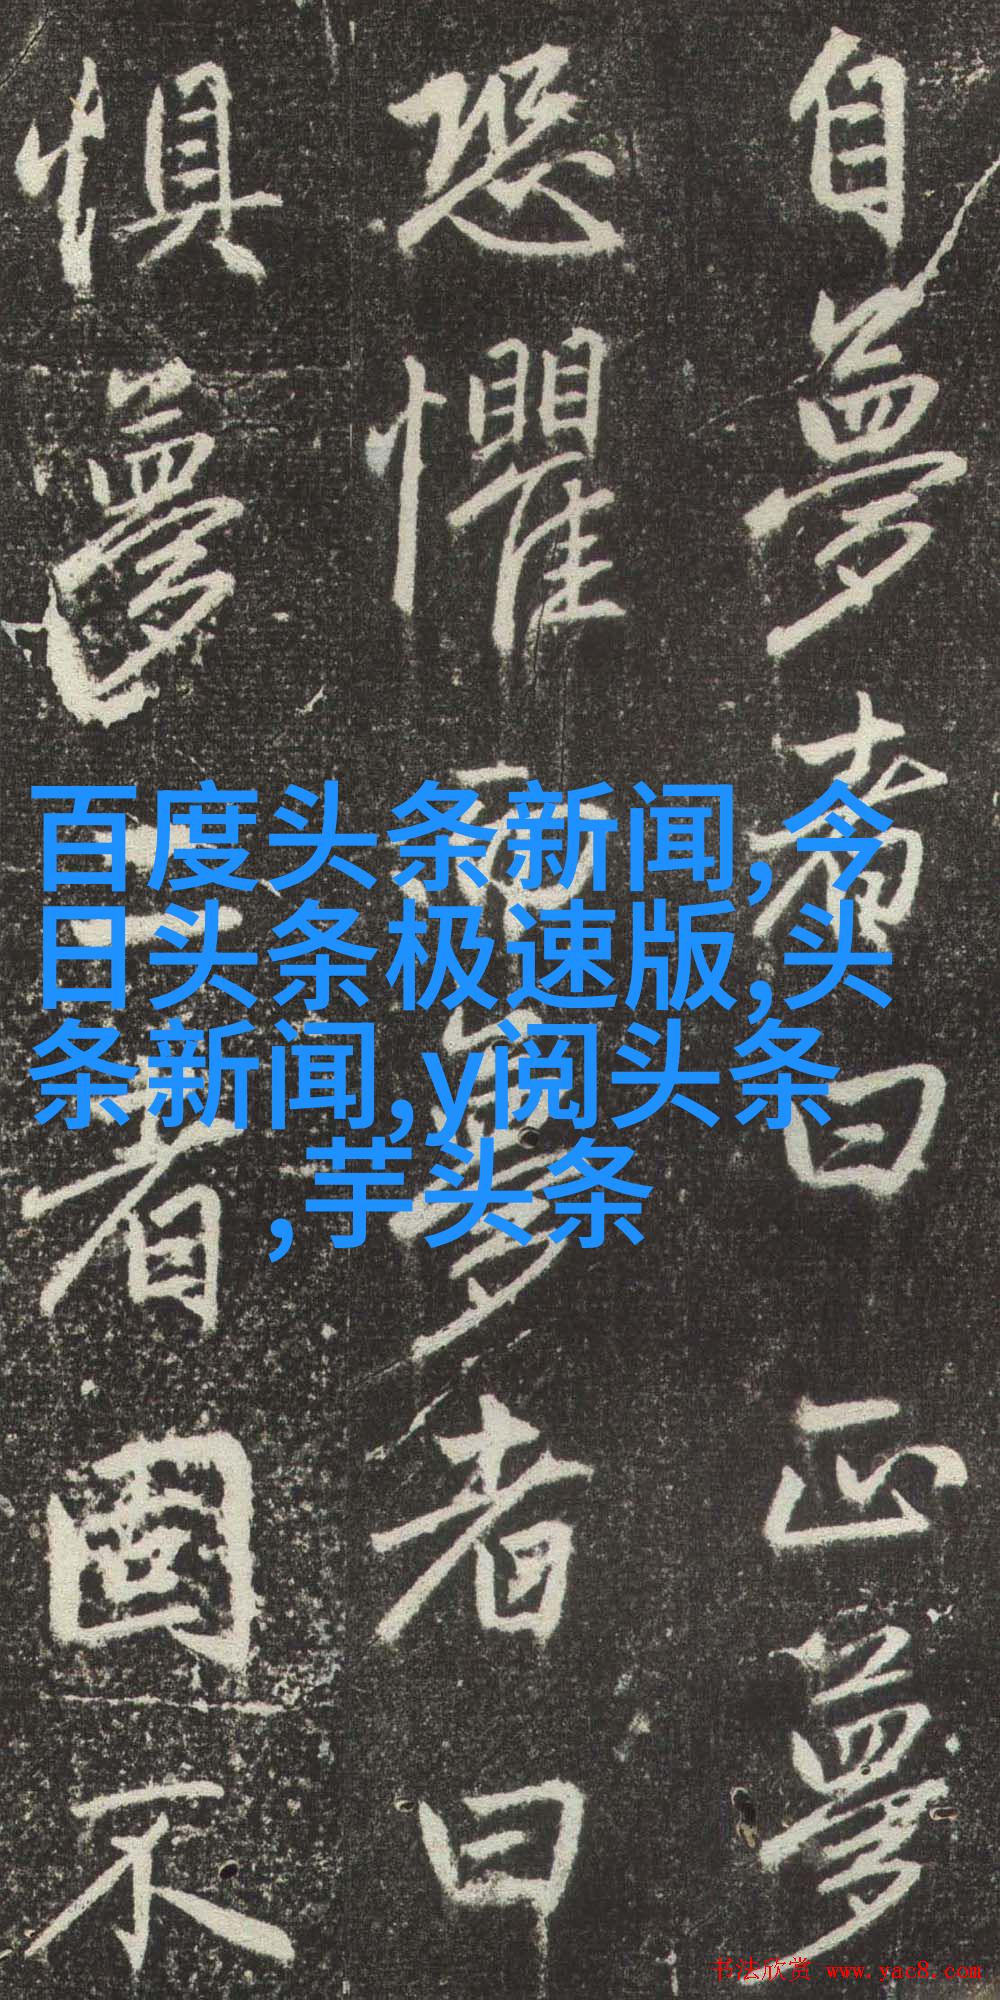 自夢者曰正夢
恐懼而夢者曰
惧夢二者固不
百度头条新闻,今
日头条极速版,头
条新闻,y阅头条
,芋头条
书法欣赏 www.yac8.com